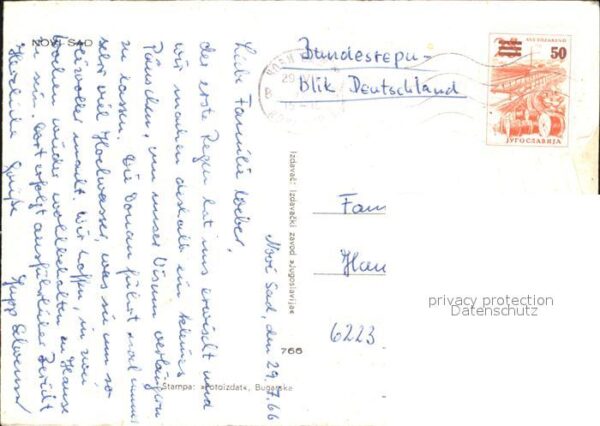 NOVI SAD
Novi Sad, den 29.7.66
Liebe Familie Weber,
der erste Regen hat uns erwischt und
wir machen deshalb ein kleines
Päuschen, um unser Visum verlängern
zu lassen. Die Donau führt mal immer
sehr viel Hochwasser, was sie um so
reizvoller macht. Wir hoffen, in zwei
Wochen wieder wohlbehalten zu Hause
zu sein. Dort erfolgt ausführlicher Bericht
Herzliche Grüße
Izdavač: Izdavački zavod »Jugoslavija«
766
Štampa: »Fotoizdat«, Bugarska
Bundesrepu-
blik Deutschland
50
JUGOSLAVIJA
29
Fam
Hau
6223
privacy protection
Datenschutz